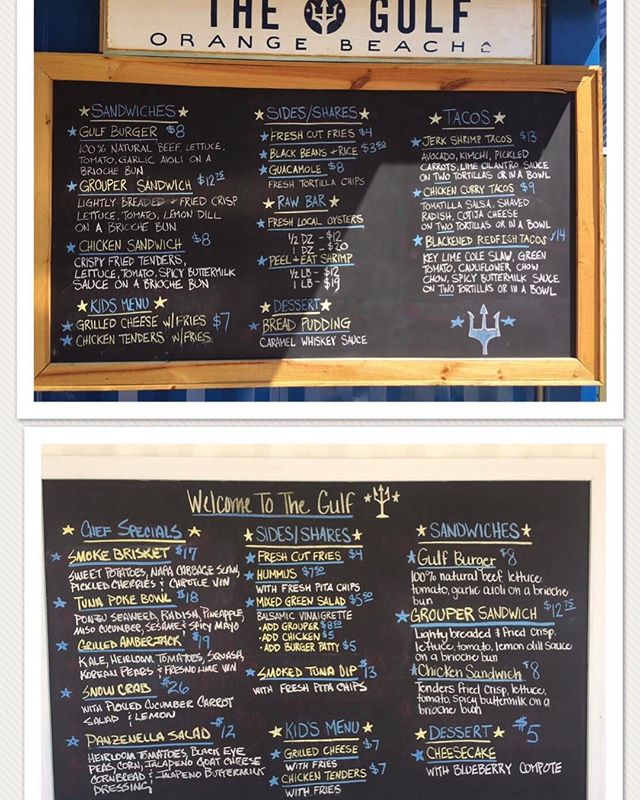 THE GULF
ORANGE BEACH
SANDWICHES
GULF BURGER $8
100% NATURAL BEEF, LETTUCE,
TOMATO, GARLIC AIOLI ON A
BRIOCHE BUN
GROUPER SANDWICH $12.75
LIGHTLY BREADED + FRIED CRISP
LETTUCE, TOMATO, LEMON DILL
ON A BRIOCHE BUN
CHICKEN SANDWICH $8
CRISPY FRIED TENDERS,
LETTUCE, TOMATO, SPICY BUTTERMILK
SAUCE ON A BRIOCHE BUN
KIDS MENU
GRILLED CHEESE W/FRIES $7
CHICKEN TENDERS W/FRIES
SIDES/SHARES
FRESH CUT FRIES $4
BLACK BEANS + RICE $3.50
GUACAMOLE $8
FRESH TORTILLA CHIPS
RAW BAR
FRESH LOCAL OYSTERS
1/2 DZ - $12
1 DZ - $20
PEEL + EAT SHRIMP
1/2 LB - $12
1 LB - $19
DESSERT
BREAD PUDDING
CARAMEL WHISKEY SAUCE
TACOS
JERK SHRIMP TACOS $13
AVOCADO, KIMCHI, PICKLED
CARROTS, LIME CILANTRO SAUCE
ON TWO TORTILLAS OR IN A BOWL
CHICKEN CURRY TACOS $9
TOMATILLA SALSA, SHAVED
RADISH, COTIJA CHEESE
ON TWO TORTILLAS OR IN A BOWL
BLACKENED REDFISH TACOS $14
KEY LIME COLE SLAW, GREEN
TOMATO, CAULIFLOWER CHOW
CHOW, SPICY BUTTERMILK SAUCE
ON TWO TORTILLAS OR IN A BOWL
Welcome To The Gulf
CHEF SPECIALS
SMOKE BRISKET $17
SWEET POTATOES, NAPA CABBAGE SLAW,
PICKLED CHERRIES & CHIPOTLE VIN
TUNA POKE BOWL $18
PONZU SEAWEED, RADISH, PINEAPPLE,
MISO CUCUMBER, SESAME & SPICY MAYO
GRILLED AMBERJACK $19
KALE, HEIRLOOM TOMATOES, SQUASH,
KOREAN PEARS & FRESNO LIME VIN
SNOW CRAB $26
WITH PICKLED CUCUMBER CARROT
SALAD & LEMON
PANZENELLA SALAD $12
HEIRLOOM TOMATOES, BLACK EYE
PEAS, CORN, JALAPENO GOAT CHEESE
CORNBREAD & JALAPENO BUTTERMILK
DRESSING
SIDES/SHARES
FRESH CUT FRIES $4
HUMMUS $7.50
WITH FRESH PITA CHIPS
MIXED GREEN SALAD $5.50
BALSAMIC VINAIGRETTE
- ADD GROUPER
- ADD CHICKEN $5
- ADD BURGER PATTY $5
SMOKED TUNA DIP $13
WITH FRESH PITA CHIPS
KID'S MENU
GRILLED CHEESE $7
WITH FRIES
CHICKEN TENDERS $7
WITH FRIES
SANDWICHES
Gulf Burger $8
100% natural beef lettuce,
tomato, garlic aioli on a brioche
bun
GROUPER SANDWICH $12.75
Lightly breaded & Fried Crisp.
lettuce, tomato, lemon dill sauce
on a brioche bun
Chicken Sandwich $8
Tenders fried Crisp, lettuce,
tomato, spicy buttermilk on a
brioche bun
DESSERT $5
CHEESECAKE
WITH BLUEBERRY COMPOTE